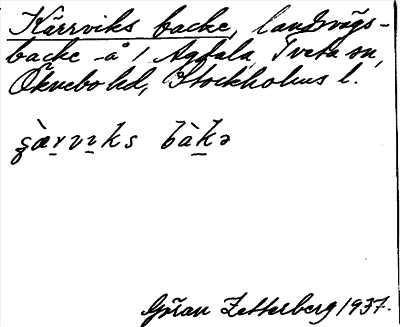 Kärrviks backe, landsvägs-
backe -å 1 Axtala, Tveta sn,
Öknebo hd, Stockholms l.
bàkə
Göran Zetterberg 1937.